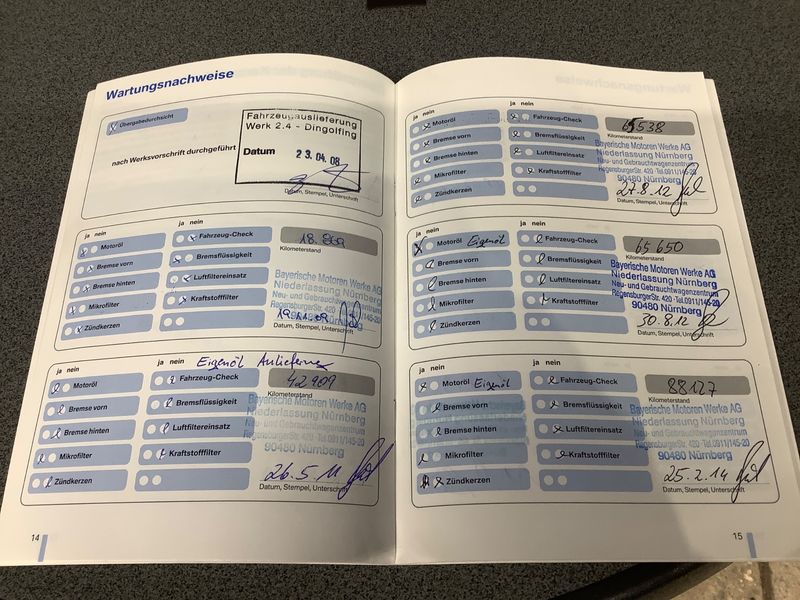 Wartungsnachweise
Übergabedurchsicht
nach Werksvorschrift durchgeführt
Fahrzeugauslieferung
Werk 2.4 - Dingolfing
Datum 23.04.08
Datum, Stempel, Unterschrift
ja nein
ja nein
Motoröl
Bremse vorn
Bremse hinten
Mikrofilter
Zündkerzen
Fahrzeug-Check
Bremsflüssigkeit
Luftfiltereinsatz
Kraftstofffilter
Kilometerstand
Bayerische Motoren Werke AG
Niederlassung Nürnberg
Neu- und Gebrauchtwagenzentrum
Regensburger Str. 420 · Tel. 0911/145-20
90480 Nürnberg
19.11.09
Datum, Stempel, Unterschrift
Eigenöl Anlieferung
ja nein
ja nein
Motoröl
Bremse vorn
Bremse hinten
Mikrofilter
Zündkerzen
Fahrzeug-Check
Bremsflüssigkeit
Luftfiltereinsatz
Kraftstofffilter
42909
Kilometerstand
Bayerische Motoren Werke AG
Niederlassung Nürnberg
Neu- und Gebrauchtwagenzentrum
Regensburger Str. 420 · Tel. 0911/145-20
90480 Nürnberg
26.5.11
Datum, Stempel, Unterschrift
14
ja nein
ja nein
Motoröl
Bremse vorn
Bremse hinten
Mikrofilter
Zündkerzen
Fahrzeug-Check
Bremsflüssigkeit
Luftfiltereinsatz
Kraftstofffilter
65538
Kilometerstand
Bayerische Motoren Werke AG
Niederlassung Nürnberg
Neu- und Gebrauchtwagenzentrum
Regensburger Str. 420 · Tel. 0911/145-20
90480 Nürnberg
27.8.12
Datum, Stempel, Unterschrift
ja nein
ja nein
Motoröl Eigenöl
Bremse vorn
Bremse hinten
Mikrofilter
Zündkerzen
Fahrzeug-Check
Bremsflüssigkeit
Luftfiltereinsatz
Kraftstofffilter
65650
Kilometerstand
Bayerische Motoren Werke AG
Niederlassung Nürnberg
Neu- und Gebrauchtwagenzentrum
Regensburger Str. 420 · Tel. 0911/145-20
90480 Nürnberg
30.8.12
Datum, Stempel, Unterschrift
ja nein
ja nein
Motoröl Eigenöl
Bremse vorn
Bremse hinten
Mikrofilter
Zündkerzen
Fahrzeug-Check
Bremsflüssigkeit
Luftfiltereinsatz
Kraftstofffilter
88127
Kilometerstand
Bayerische Motoren Werke AG
Niederlassung Nürnberg
Neu- und Gebrauchtwagenzentrum
Regensburger Str. 420 · Tel. 0911/145-20
90480 Nürnberg
25.2.14
Datum, Stempel, Unterschrift
15